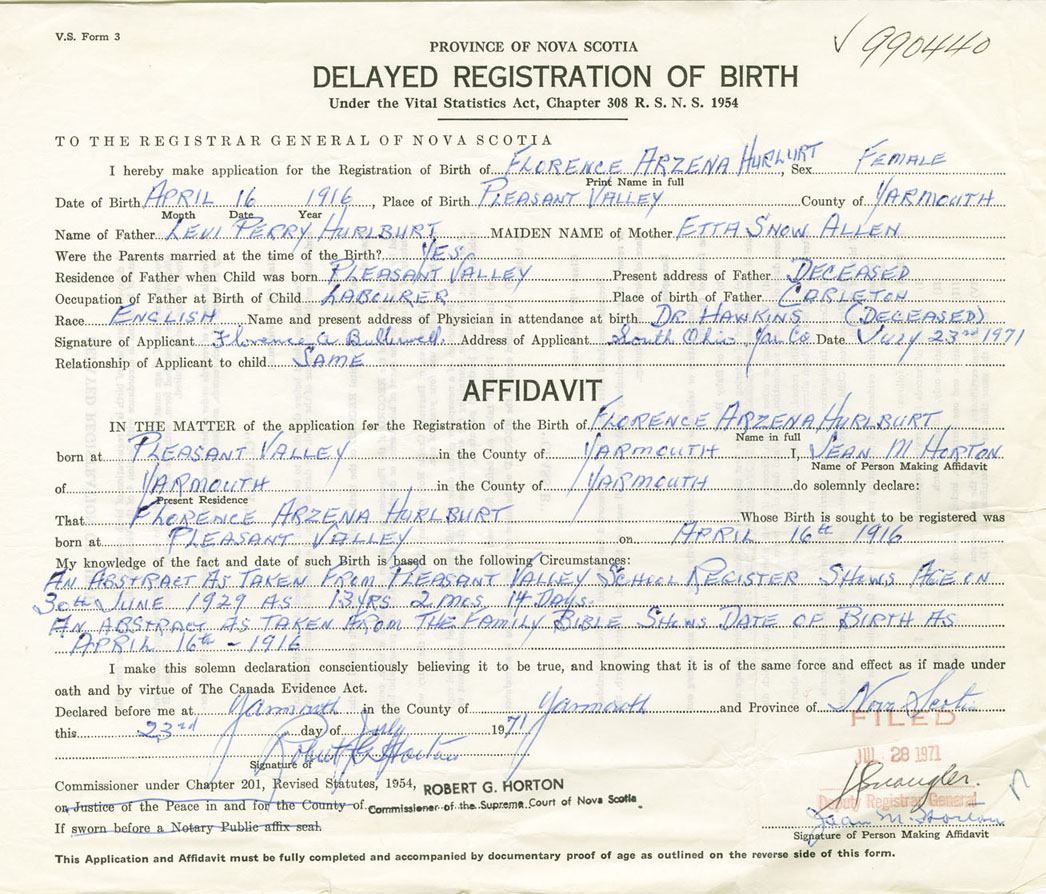 V.S. Form 3
√ 990440
PROVINCE OF NOVA SCOTIA
DELAYED REGISTRATION OF BIRTH
Under the Vital Statistics Act, Chapter 308 R. S. N. S. 1954
TO THE REGISTRAR GENERAL OF NOVA SCOTIA
I hereby make application for the Registration of Birth of FLORENCE ARZENA HURLURT, Sex FEMALE
Print Name in full
Date of Birth APRIL 16 1916, Place of Birth PLEASANT VALLEY County of YARMOUTH
Month Date Year
Name of Father LEVI PERRY HURLBURT MAIDEN NAME of Mother ETTA SNOW ALLEN
Were the Parents married at the time of the Birth? YES
Residence of Father when Child was born PLEASANT VALLEY Present address of Father DECEASED
Occupation of Father at Birth of Child LABOURER Place of birth of Father CARLETON
Race ENGLISH Name and present address of Physician in attendance at birth DR HAWKINS (DECEASED)
Signature of Applicant Florence A. Address of Applicant South Ohio, Yar Co Date JULY 23rd 1971
Relationship of Applicant to child SAME
AFFIDAVIT
IN THE MATTER of the application for the Registration of the Birth of FLORENCE ARZENA HURLBURT
Name in full
born at PLEASANT VALLEY in the County of YARMOUTH I, JEAN M HORTON
Name of Person Making Affidavit
of YARMOUTH in the County of YARMOUTH do solemnly declare:
Present Residence
That FLORENCE ARZENA HURLBURT Whose Birth is sought to be registered was
born at PLEASANT VALLEY on APRIL 16th 1916
My knowledge of the fact and date of such Birth is based on the following Circumstances:
AN ABSTRACT AS TAKEN FROM PLEASANT VALLEY SCHOOL REGISTER SHOWS AGE ON
30th JUNE 1929 AS 13 YRS 2 MOS 14 DAYS.
AN ABSTRACT AS TAKEN FROM THE FAMILY BIBLE SHOWS DATE OF BIRTH AS
APRIL 16th - 1916
I make this solemn declaration conscientiously believing it to be true, and knowing that it is of the same force and effect as if made under
oath and by virtue of The Canada Evidence Act.
Declared before me at Yarmouth in the County of Yarmouth and Province of Nova Scotia
this 23rd day of July 1971
FILED
JUL 28 1971
Robert G Horton
Signature of
Commissioner under Chapter 201, Revised Statutes, 1954, ROBERT G. HORTON
or Justice of the Peace in and for the County of Commissioner of the Supreme Court of Nova Scotia
Deputy Registrar General
If sworn before a Notary Public affix seal.
Jean M. Horton
Signature of Person Making Affidavit
This Application and Affidavit must be fully completed and accompanied by documentary proof of age as outlined on the reverse side of this form.